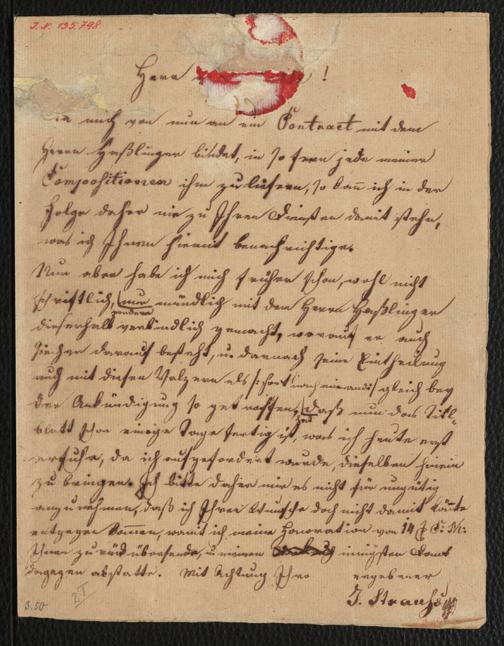 I.N. 135.798
Herrn !
mich von nun an ein Contract mit dem
Herrn Haßlinger bindet, in so fern jede meiner
Compositionen ihm zu liefern, so kann ich in der
Folge daher nie zu Ihren Diensten damit stehn,
was ich Ihnen hiemit benachrichtige.
Nun aber habe ich mich früher schon, wohl nicht
schriftlich, nur mündlich mit dem Herrn Haßlinger
dieserhalb verbindlich gemacht, worauf er auch
sicher darauf besteht, u. darnach seine Eintheilung
auch mit diesen Walzern als gleich bey
der Ankündigung so getroffen, daß nun das Titl-
blatt schon einige Tage fertig ist, was ich heute erst
erfuhr, da ich aufgefordert wurde, dieselben hinein
zu bringen. Ich bitte daher mir es nicht für ungütig
anzunehmen, daß ich Ihrem Wunsche doch nicht damit könnte
entgegen kommen, womit ich meine Honoration von 14 f C: M:
Ihnen zurück übersende, u. meinen innigsten Dank
dagegen abstatte. Mit Achtung Ihr ergebener
J. Strauß
3.50